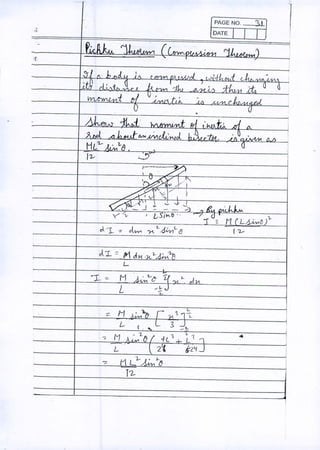 PAGE NO. 31
DATE
Pichku Theorem (Compression Theorem)
If a body is compressed, without changing
its distance from the axis then its
moment of inertia is unchanged
Show that moment of inertia of a
Rod about an inclined bisector is given as
ML² Sin²θ.
12
θ
L Sinθ
→ By pichku
I = M(L Sinθ)²
12
dI = dm x² Sin²θ
dI = M dx x² Sin²θ
L
I = M Sin²θ ∫ x² dx
L
= M Sin²θ [ x³ ]
L 3
= M Sin²θ ( L³ + L³ )
L 24 24
= ML² Sin²θ
12